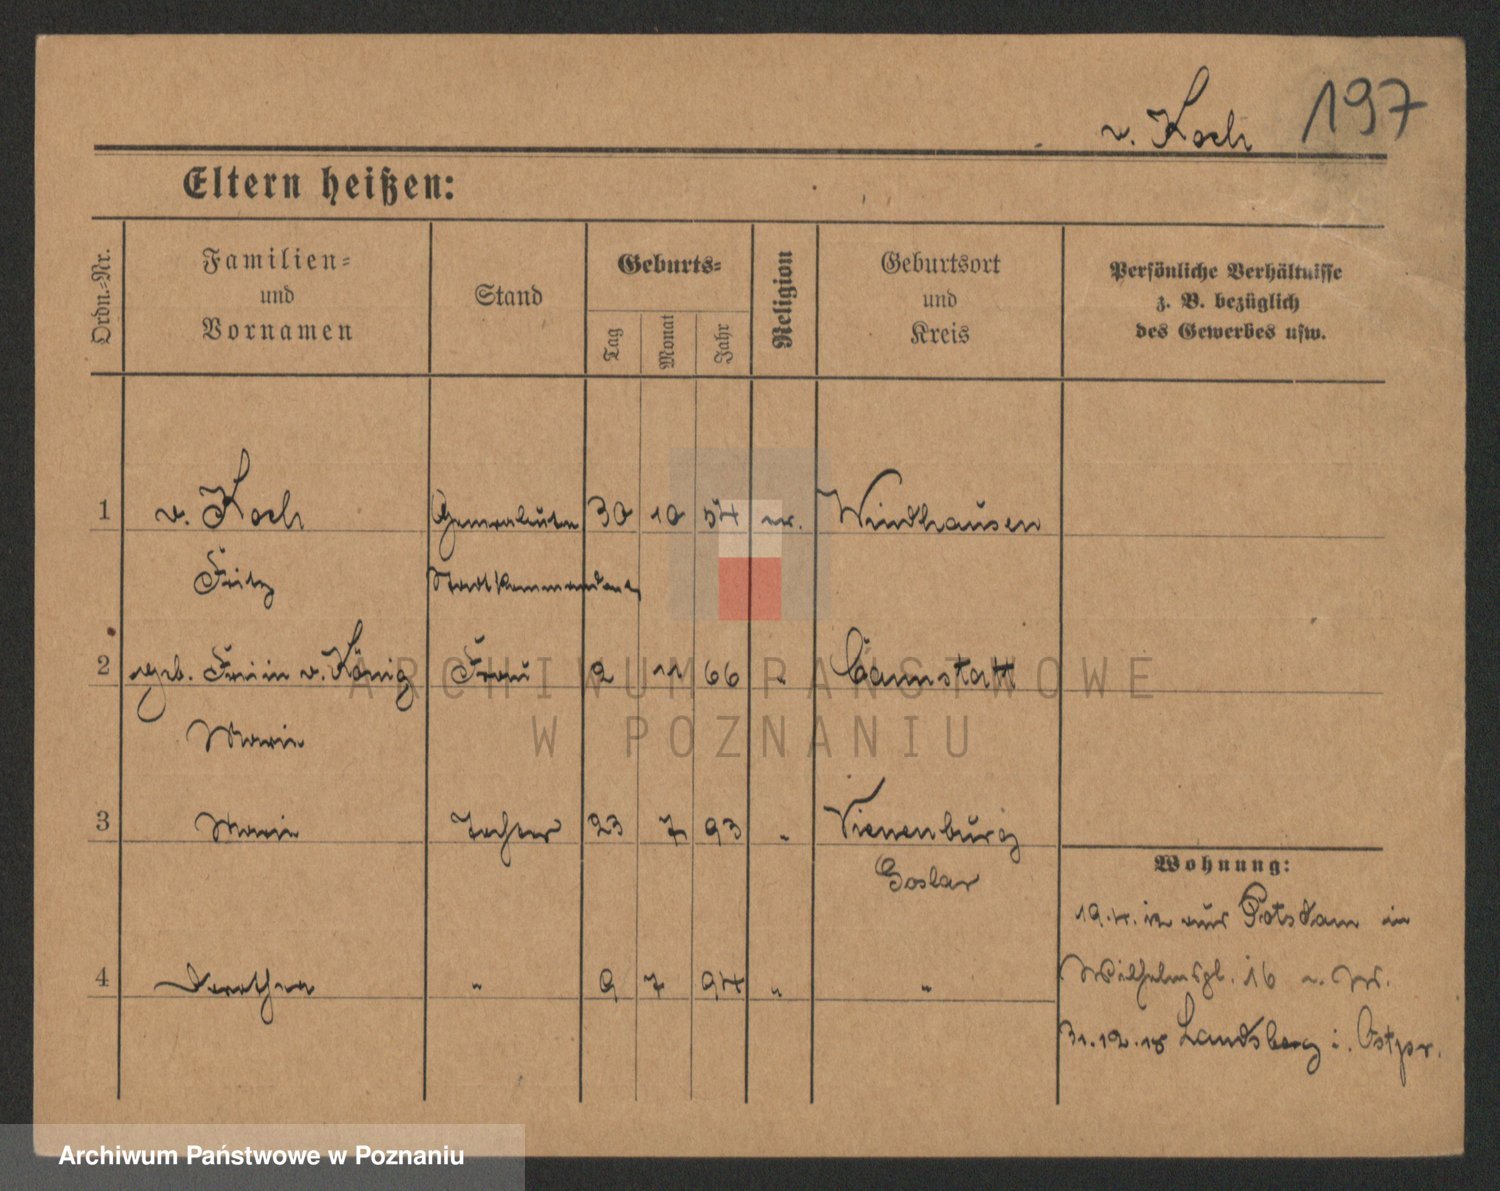 v. Koch 197
Eltern heißen:
Ordn.-Nr.
Familien-
und
Vornamen
Stand
Geburts-
Tag
Monat
Jahr
Religion
Geburtsort
und
Kreis
Persönliche Verhältnisse
z. B. bezüglich
des Gewerbes usw.
1 v. Koch Generalleutn 30 10 54 ev. Windhausen
Fritz Stadtkommandant
2 geb. Freiin v. König Frau 2 11 66 " Cannstatt
Marie
3 Marie Tochter 23 7 93 " Vienenburg
Goslar
4 Dorothea " 9 7 94 " "
Wohnung:
19.4. aus Potsdam in
Wilhelmspl. 16
31.12.18 Landsberg i. Ostpr.
ARCHIWUM PAŃSTWOWE
W POZNANIU
Archiwum Państwowe w Poznaniu